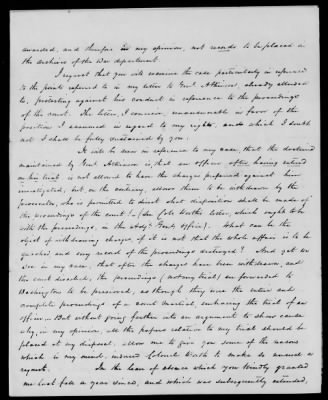 awarded, and therefore in my opinion, not records to be placed in
the archives of the War department.
I request that you will examine the case particularly in reference
to the points referred to in my letter to Genl. Atkinson, already alluded
to, protesting against his conduct in reference to the proceedings
of the court. The letter, I conceive, unanswerable in favor of the
position I assumed in regard to my rights, and which I doubt
not I shall be fully sustained by you.
It will be seen in reference to my case, that the doctrine
maintained by Genl. Atkinson is, that an officer after having entered
on his trial is not allowed to have the charges preferred against him
investigated; but, on the contrary, allows them to be withdrawn by the
prosecutor, who is permitted to direct what disposition shall be made of
the proceedings of the court! (See Colo. Worths letter, which ought to be
with the proceedings, in the Adjt. Genls. office). What can be the
object of withdrawing charges if it is not that the whole affair is to be
quashed and every record of the proceedings destroyed? And yet we
see in my case, that after the charges have been withdrawn, and
the court dissolved, the proceedings (not my trial) are forwarded to
Washington to be preserved, as though they were the entire and
complete proceedings of a court martial, embracing the trial of an
officer. But without going further into an argument to show cause
why, in my opinion, all the papers relative to my trial should be
placed at my disposal, allow me to give you some of the reasons
which in my mind, induced Colonel Worth to make so unusual a
request. In the leave of absence which you kindly granted
me last fall a year since, and which was subsequently extended,